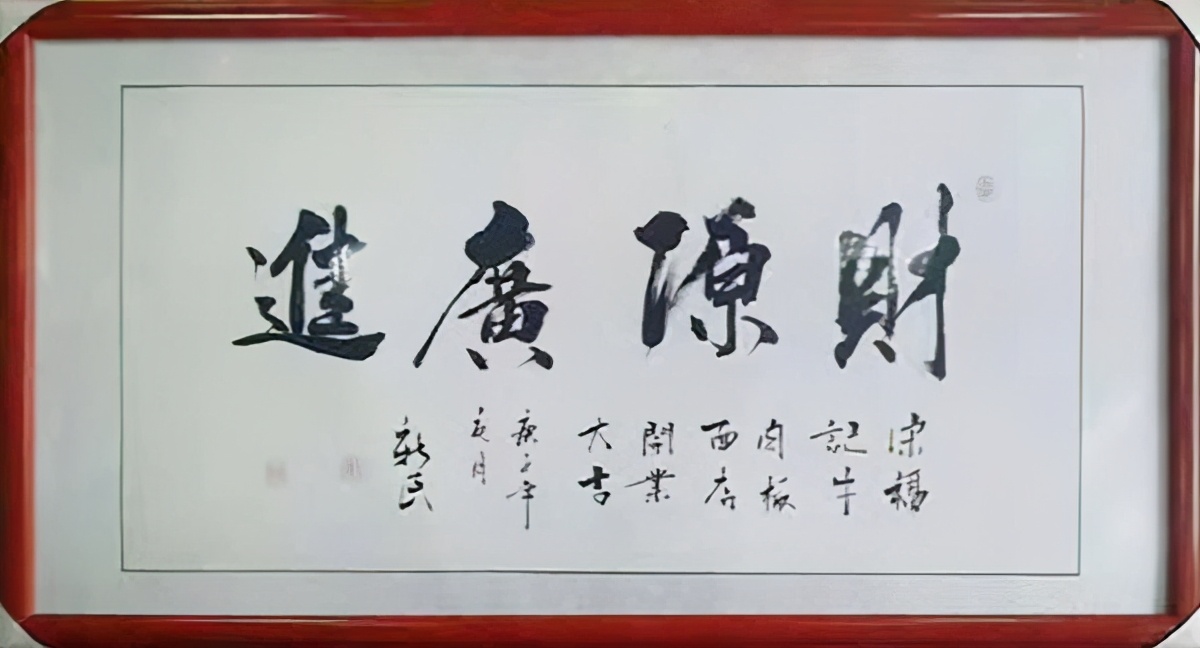 財源廣進
宋福
記牛
肉板
面店
開業
大吉
庚子年
亥月
新民